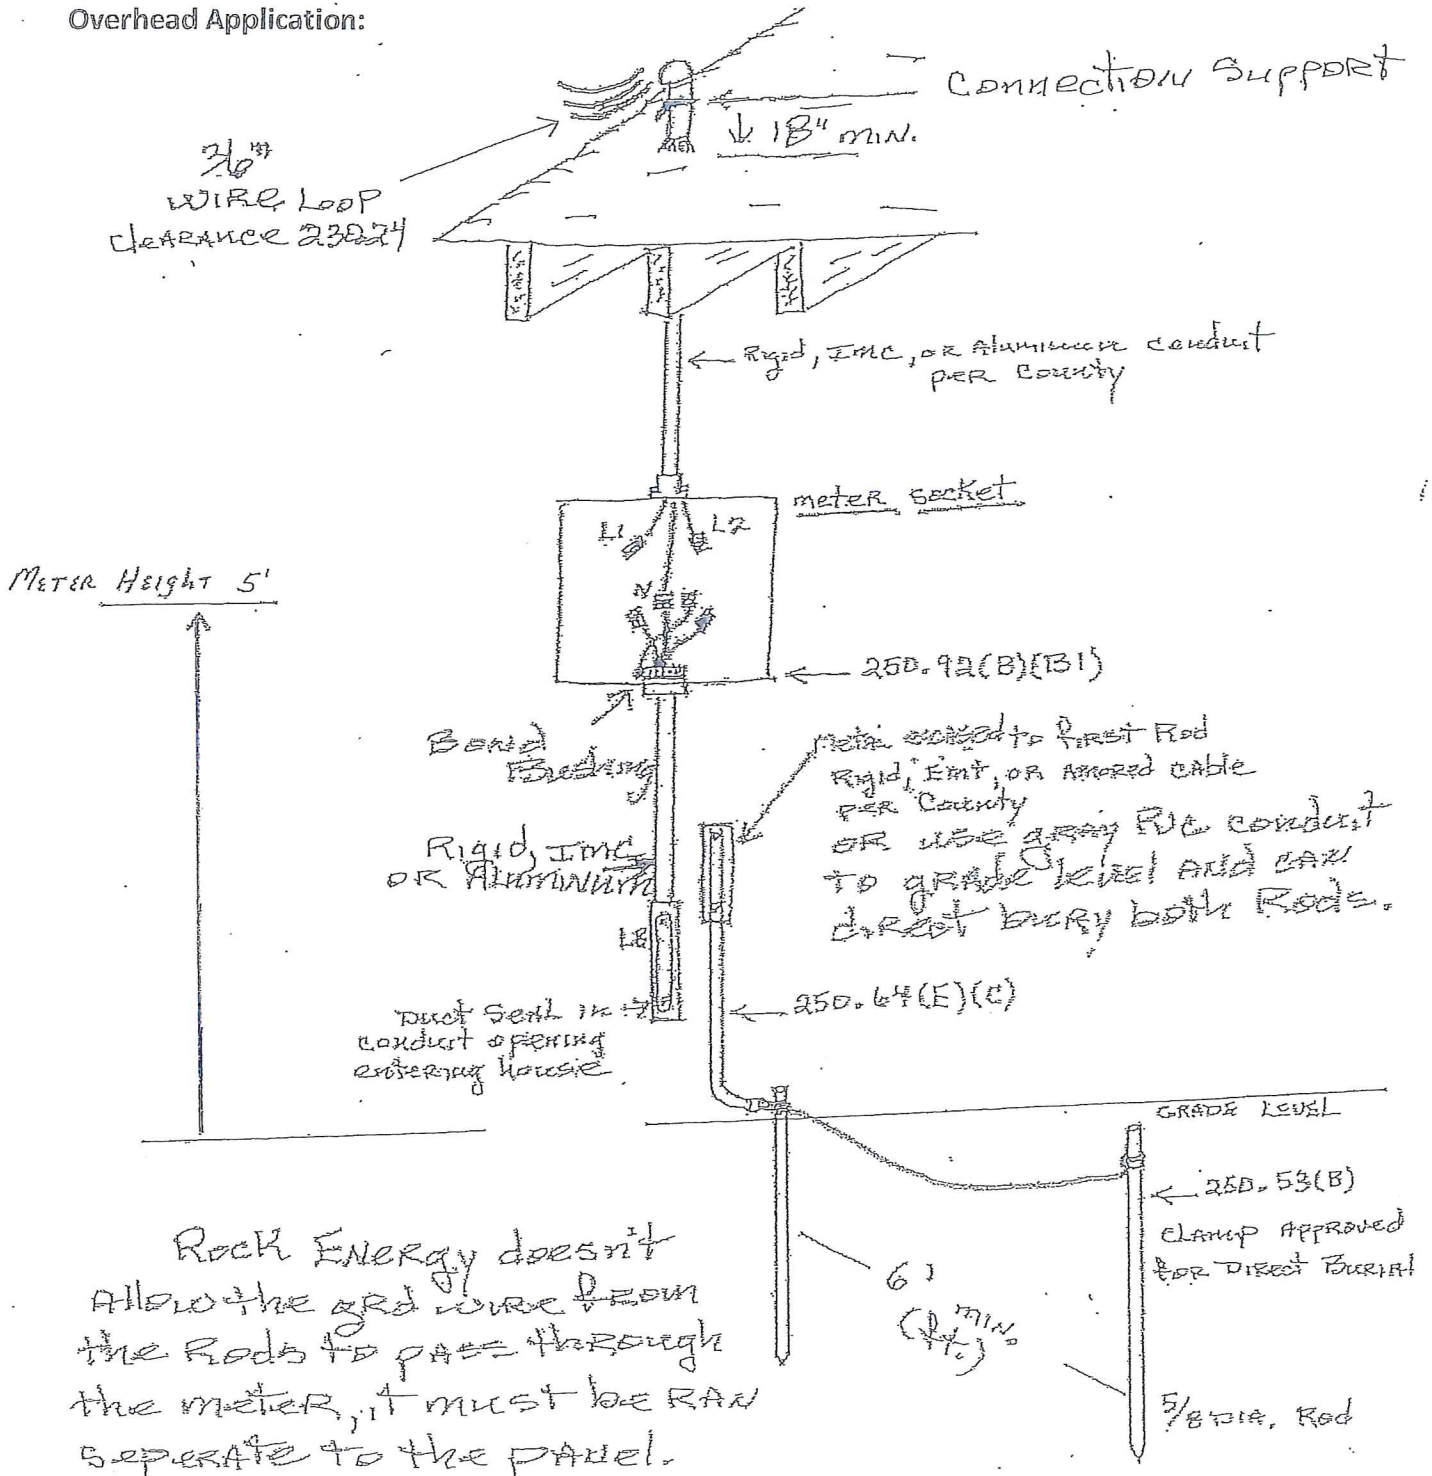 Overhead Application:
Connection Support
18" min.
WIRE Loop
CleARANCE 230.24
Rigid, IMC, OR Aluminum conduit
PER County
meter socket
L1
L2
N
METER HEIGHT 5'
250.92(B)(B1)
Bond
Bushing
to first Rod
Rigid, Emt, OR AMORED CABLE
PER County
OR use gray PVC conduit
TO GRADE level AND CAN
direct bury both Rods.
Rigid, IMC
OR Aluminum
LB
250.64(E)(C)
Duct Seal in
conduit opening
entering house
GRADE LEVEL
250.53(B)
CLAMP APPROVED
FOR DIRECT BURIAL
Rock Energy doesn't
Allow the grd wire from
the Rods to pass through
the meter, it must be RAN
seperate to the panel.
6'
MIN.
5/8 DIA. Rod